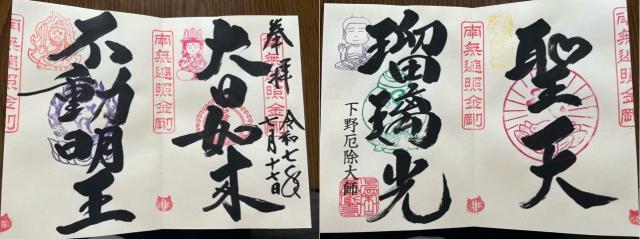 奉拝
令和七年
月十七日
南無遍照金剛
大日如来
南無遍照金剛
不動明王
南無遍照金剛
南無遍照金剛
聖天
南無遍照金剛
瑠璃光
下野厄除大師